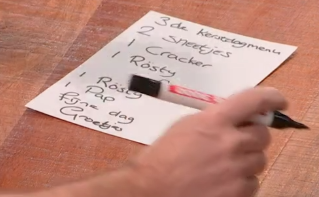 3 de Kerstdagmenu
2 Sneetjes
1 Cracker
1 Rösty
1 Rösty
1 Pap
Fijne dag
Groetjes